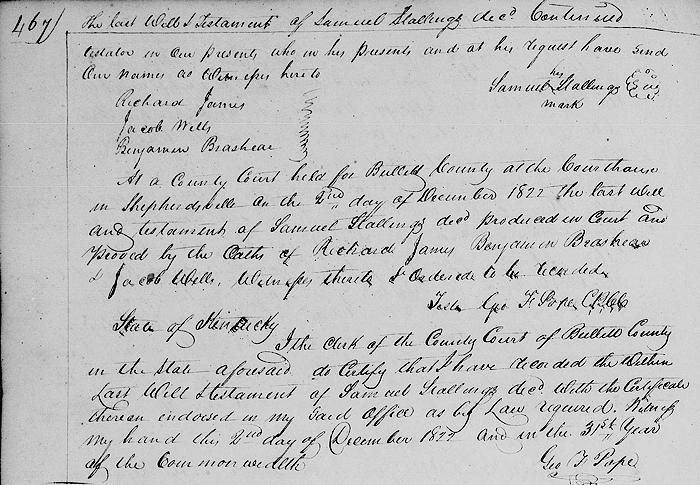 467/ The last Will & Testament of Samuel Stallings decd. Continued
testator in Our presents who in his presents and at his request have send
Our names as Witnesses hereto
his
Samuel Stallings
mark
Richard James
Jacob Wells
Benjamin Brashear
At a County Court held for Bullitt County at the Courthouse
in Shepherdsville on the 2nd day of December 1822 the last Will
and testament of Samuel Stallings decd produced in Court and
proved by the Oaths of Richard James Benjamin Brashear
& Jacob Wells, Witnesses thereto & Ordered to be recorded
Teste Geo F. Pope CBCC
State of Kentucky
I the clerk of the County Court of Bullitt County
in the State aforesaid do Certify that I have recorded the Within
Last Will & testament of Samuel Stallings decd. With the Certificate
thereon endorsed in my Said Office as by Law required. Witness
my hand this 2nd day of December 1822 and in the 31st Year
of the Commonwealth
Geo F. Pope